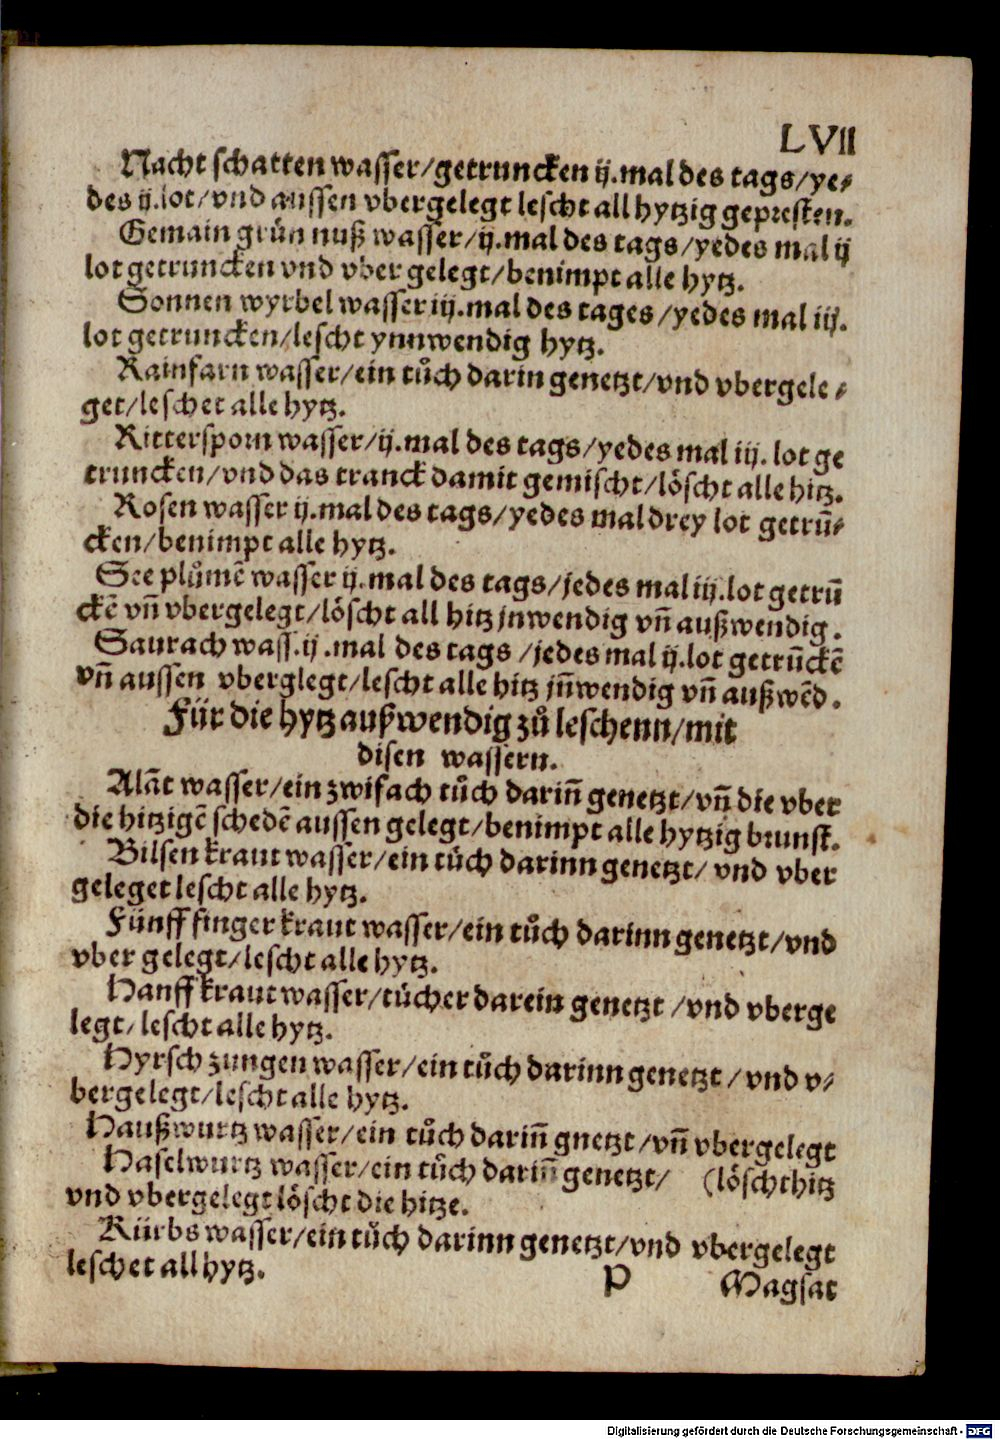 LVII
Nacht schatten wasser/getruncken ij.mal des tags/ye⸗
des ij.lot/vnd aussen vbergelegt lescht all hytzig gepresten.
Gemain grůn nuß wasser/ij.mal des tags/yedes mal ij
lot getruncken vnd vber gelegt/benimpt alle hytz.
Sonnen wyrbel wasser iij.mal des tages/yedes mal iij.
lot getruncken/lescht ynnwendig hytz.
Rainfarn wasser/ein tůch darin genetzt/vnd vbergele⸗
get/leschet alle hytz.
Rittersporn wasser/ij.mal des tags/yedes mal iij. lot ge
truncken/vnd das tranck damit gemischt/löscht alle hitz.
Rosen wasser ij.mal des tags/yedes mal drey lot getrū⸗
cken/benimpt alle hytz.
See plůmē wasser ij.mal des tags/jedes mal iij.lot getrū
ckē vn̄ vbergelegt/löscht all hitz jnwendig vn̄ außwendig.
Saurach wass.ij.mal des tags/jedes mal ij.lot getrūckē
vn̄ aussen vberglegt/lescht alle hitz jn̄wendig vn̄ außwēd.
Für die hytz außwendig zů leschenn/mit
disen wassern.
Alāt wasser/ein zwifach tůch darin̄ genetzt/vn̄ die vber
die hitzigē schedē aussen gelegt/benimpt alle hytzig brunst.
Bilsen kraut wasser/ein tůch darinn genetzt/vnd vber
geleget lescht alle hytz.
Fünff finger kraut wasser/ein tůch darinn genetzt/vnd
vber gelegt/lescht alle hytz.
Hanff kraut wasser/tůcher darein genetzt/vnd vberge
legt/lescht alle hytz.
Hyrsch zungen wasser/ein tůch darinn genetzt/vnd v⸗
bergelegt/lescht alle hytz.
Haußwurtz wasser/ein tůch darin̄ gnetzt/vn̄ vbergelegt
Haselwurtz wasser/ein tůch darin̄ genetzt/ (löscht hitz
vnd vbergelegt löscht die hitze.
Kürbs wasser/ein tůch darinn genetzt/vnd vbergelegt
leschet all hytz.
P Magsat
Digitalisierung gefördert durch die Deutsche Forschungsgemeinschaft - DFG